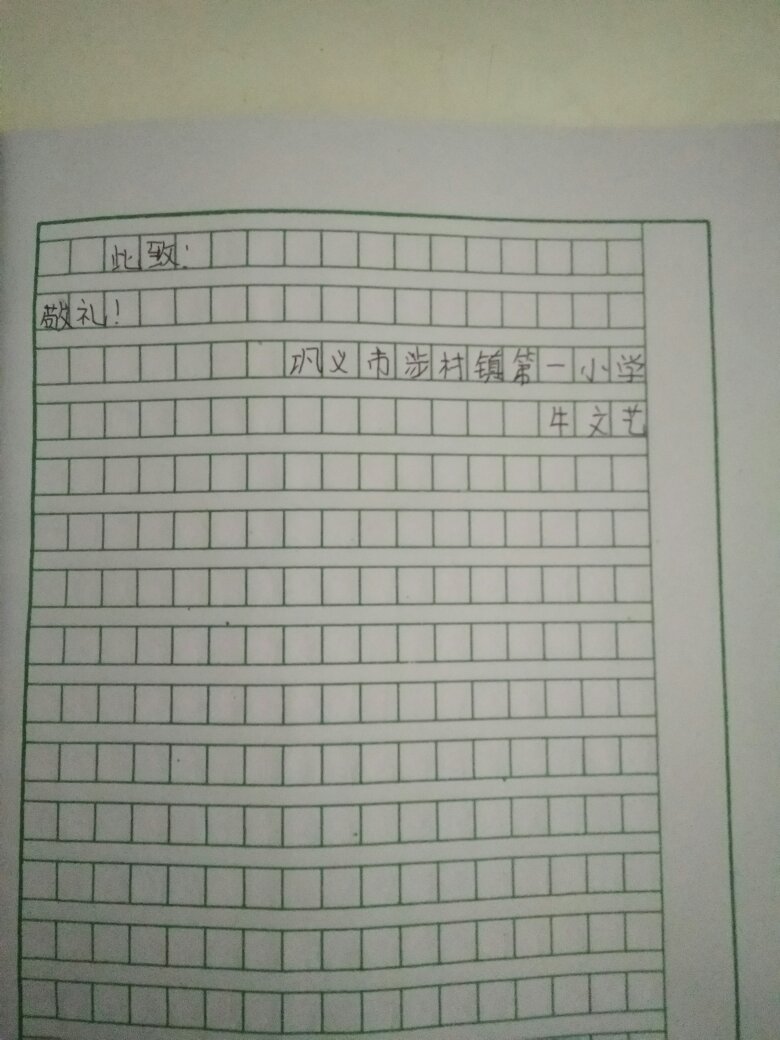 此致：
敬礼！
巩义市涉村镇第一小学
牛文艺